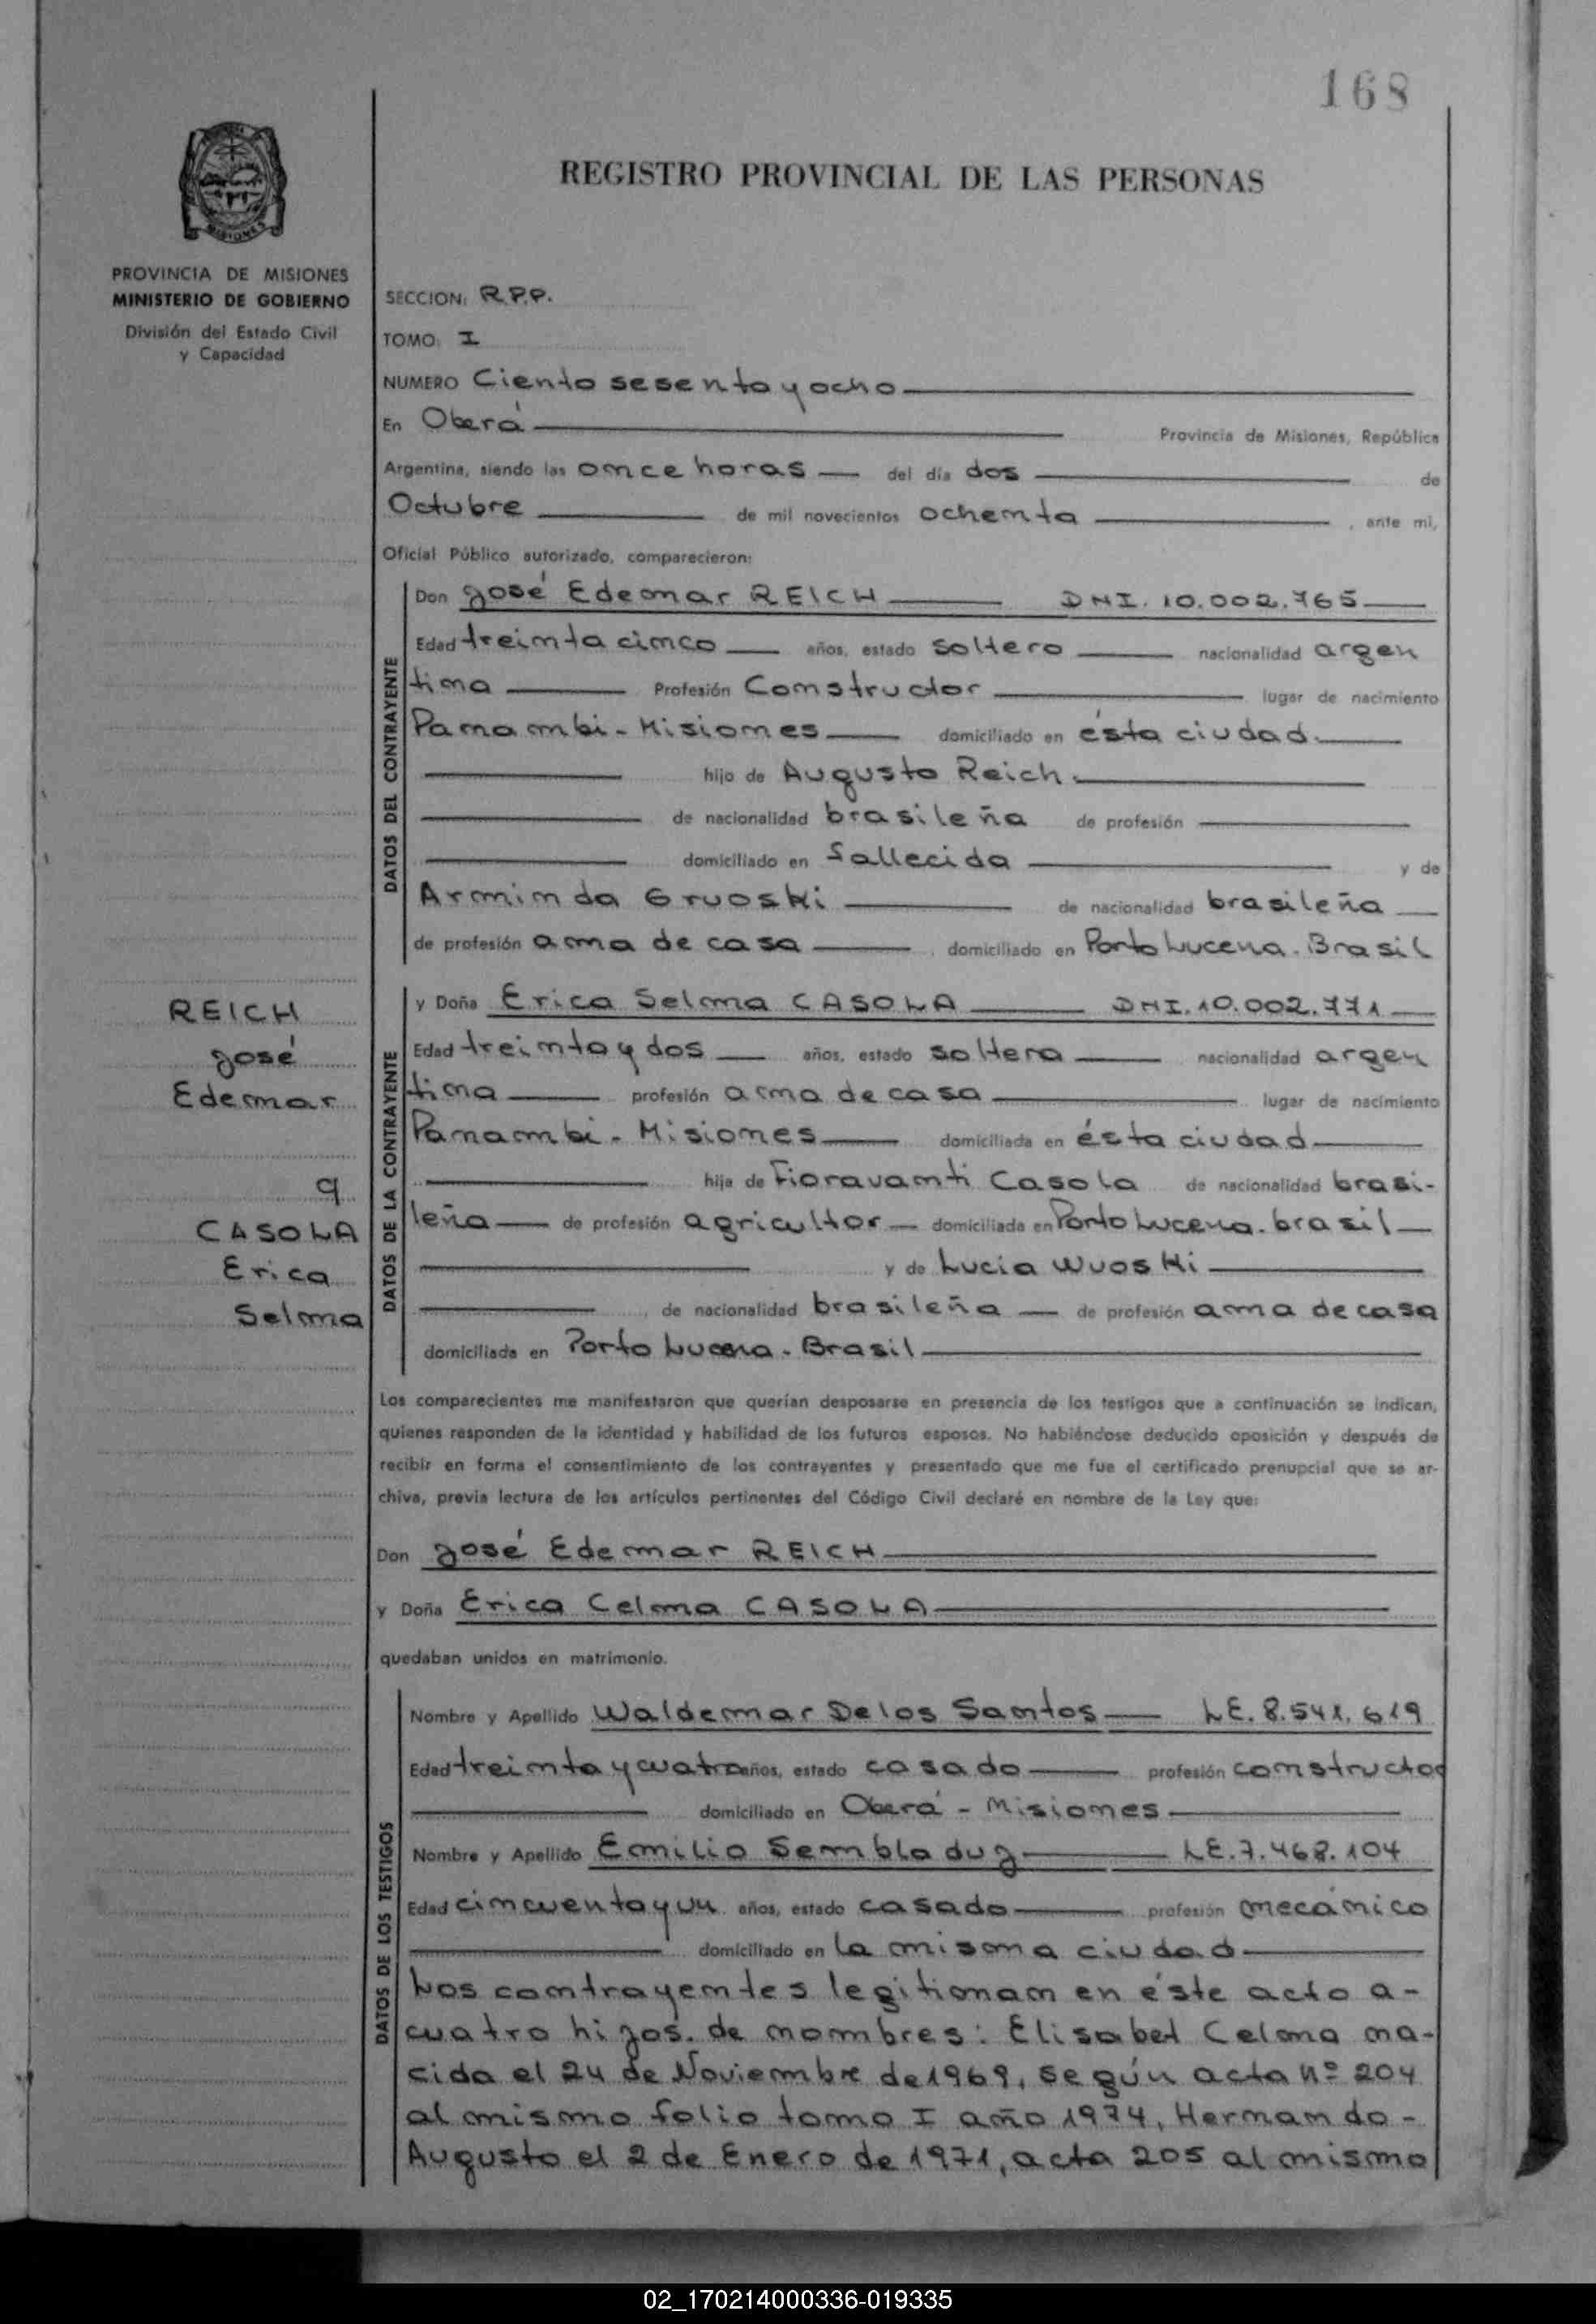 168
REGISTRO PROVINCIAL DE LAS PERSONAS
MISIONES
PROVINCIA DE MISIONES
MINISTERIO DE GOBIERNO
División del Estado Civil
y Capacidad
SECCION: R.P.P.
TOMO: I
NUMERO Ciento sesenta y ocho
En Oberá Provincia de Misiones, República
Argentina, siendo las once horas del día dos de
Octubre de mil novecientos ochenta, ante mí,
Oficial Público autorizado, comparecieron:
DATOS DEL CONTRAYENTE
Don José Edemar REICH DNI. 10.002.765
Edad treinta cinco años, estado soltero nacionalidad argen
tina Profesión Constructor lugar de nacimiento
Panambi - Misiones domiciliado en ésta ciudad.
hijo de Augusto Reich.
de nacionalidad brasileña de profesión
domiciliado en fallecida y de
Arminda Gruoski de nacionalidad brasileña
de profesión ama de casa, domiciliado en Porto Lucena. Brasil
REICH
José
Edemar
q
CASOLA
Erica
Selma
DATOS DE LA CONTRAYENTE
y Doña Erica Selma CASOLA DNI. 10.002.771
Edad treinta y dos años, estado soltera nacionalidad argen
tina profesión ama de casa lugar de nacimiento
Panambi - Misiones domiciliada en ésta ciudad
hija de Fioravanti Casola de nacionalidad brasi-
leña de profesión agricultor domiciliado en Porto Lucena. brasil
y de Lucia Wuoski
de nacionalidad brasileña de profesión ama de casa
domiciliada en Porto Lucena - Brasil
Los comparecientes me manifestaron que querían desposarse en presencia de los testigos que a continuación se indican,
quienes responden de la identidad y habilidad de los futuros esposos. No habiéndose deducido oposición y después de
recibir en forma el consentimiento de los contrayentes y presentado que me fue el certificado prenupcial que se ar-
chiva, previa lectura de los artículos pertinentes del Código Civil declaré en nombre de la Ley que:
Don José Edemar REICH
y Doña Erica Celma CASOLA
quedaban unidos en matrimonio.
DATOS DE LOS TESTIGOS
Nombre y Apellido Waldemar Delos Santos LE. 8.541.619
Edad treinta y cuatro años, estado casado profesión constructor
domiciliado en Oberá - Misiones
Nombre y Apellido Emilio Sembladuz LE. 7.468.104
Edad cincuenta y un años, estado casado profesión mecánico
domiciliado en la misma ciudad
Los contrayentes legitiman en éste acto a-
cuatro hijos. de nombres: Elisabet Celma na-
cida el 24 de Noviembre de 1969, según acta nº 204
al mismo folio tomo I año 1974, Hernando -
Augusto el 2 de Enero de 1971, acta 205 al mismo
02_170214000336-019335